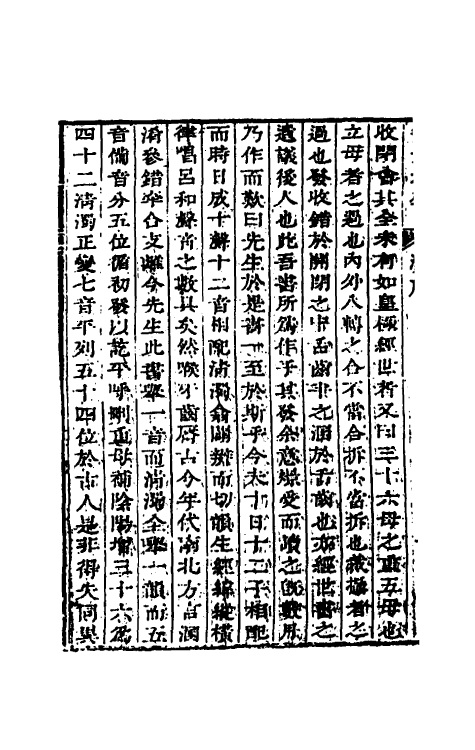 收閉會其全未有如皇極經世者又曰三十六母之重五母也
立母者之過也內外八轉之合不當合拆不當拆也議攝者之
過也發收錯於開閉之中舌齒半之溷於舌齒也亦經世書之
遺議後人也此吾書所為作乎其發余意燥受而讀之既數月
乃作而歎曰先生於是書一至於斯乎今夫十日十二子相配
而時日成十聲十二音相配清濁翕闢辨而切韻生經緯縱橫
律唱呂和聲音之數具矣然喉牙齒唇古今年代南北方言溷
淆參錯牽合支離今先生此書舉一音而清濁全舉一韻而五
音備音分五位循初發以訖平呼刪重母補陰陽增三十六為
四十二清濁正變七音平列五十四位於古人是非得失同異